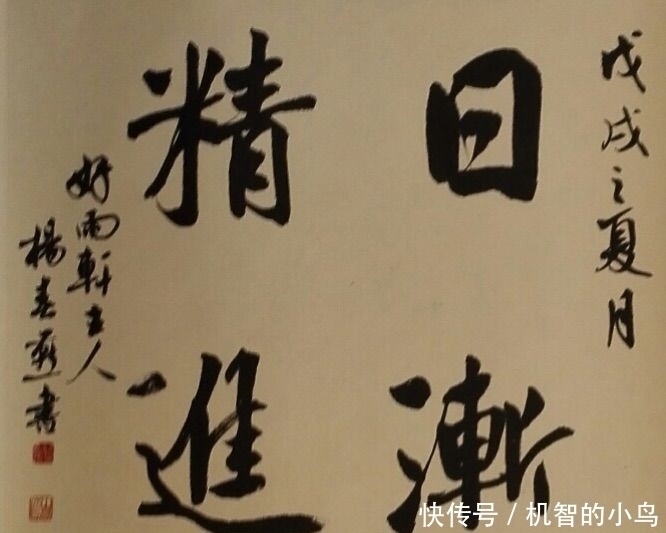 戊戌之夏月
日漸
精進
好雨軒主人
楊春燕書
快传号/机智的小鸟